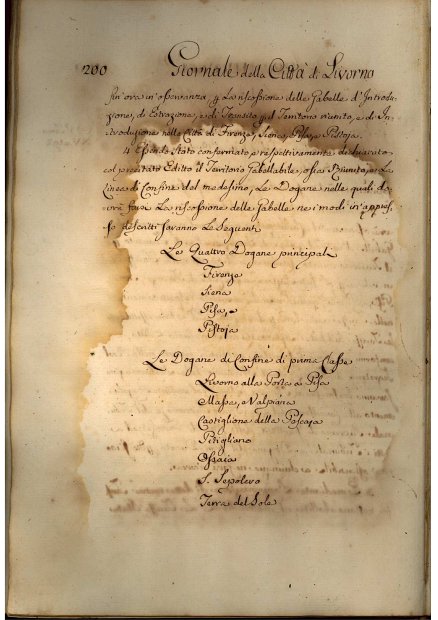 200 Giornale della Città di Livorno
fin'ora in osservanza p. La riscossione delle Gabelle d'Introdu-
zione, d'Estrazione, e di Transito p. il Territorio riunito, e di In-
troduzione nelle Città di Firenze, Siena, Pisa, e Pistoja.
4 Essendo Stato confermato, e respettivamente dichiarato
col precitato Editto il Territorio Gabellabile, o sia Riunito, e La
Linea di Confine del medesimo, Le Dogane nelle quali do-
vrà farsi La riscossione delle Gabelle nei modi in appres-
so descritti saranno Le Seguenti
Le Quattro Dogane principali
Firenze
Siena
Pisa, e
Pistoja
Le Dogane di Confine di prima Classe
Livorno alla Porta a Pisa
Massa, e Valpiana
Castiglione della Pescaja
Pitigliano
Ossaia
S. Sepolcro
Terra del Sole